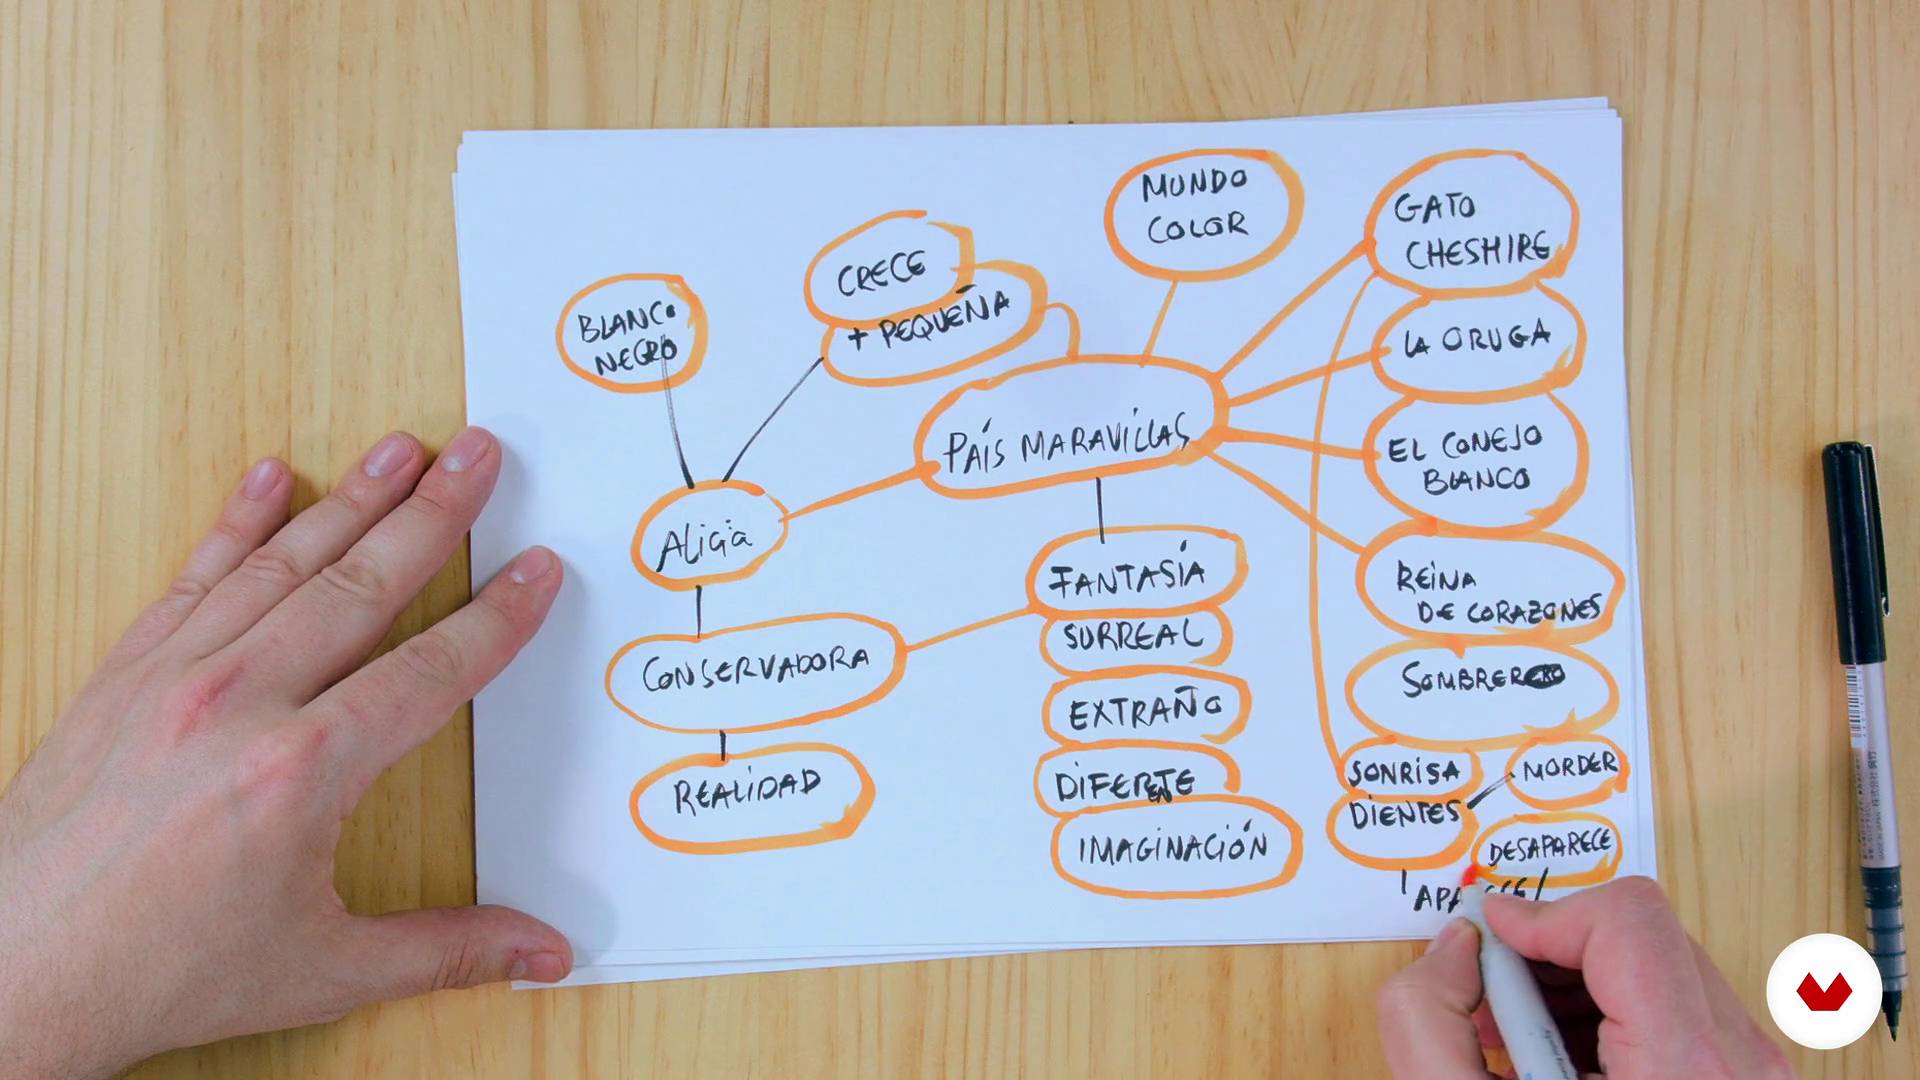 MUNDO
COLOR
GATO
CHESHIRE
CRECE
+ PEQUEÑA
BLANCO
NEGRO
LA ORUGA
PAÍS MARAVILLAS
EL CONEJO
BLANCO
ALICIA
FANTASÍA
REINA
DE CORAZONES
SURREAL
CONSERVADORA
SOMBRERERO
EXTRAÑO
REALIDAD
DIFERENTE
SONRISA
MORDER
DIENTES
IMAGINACIÓN
DESAPARECE